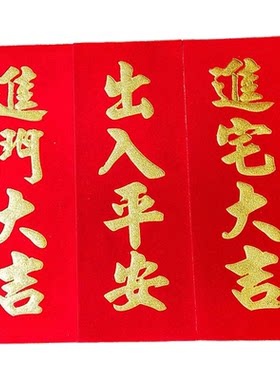 進宅大吉
出入平安
進門大吉